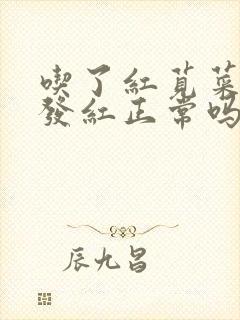 喫了紅莧菜
發紅正常嗎
辰九昌